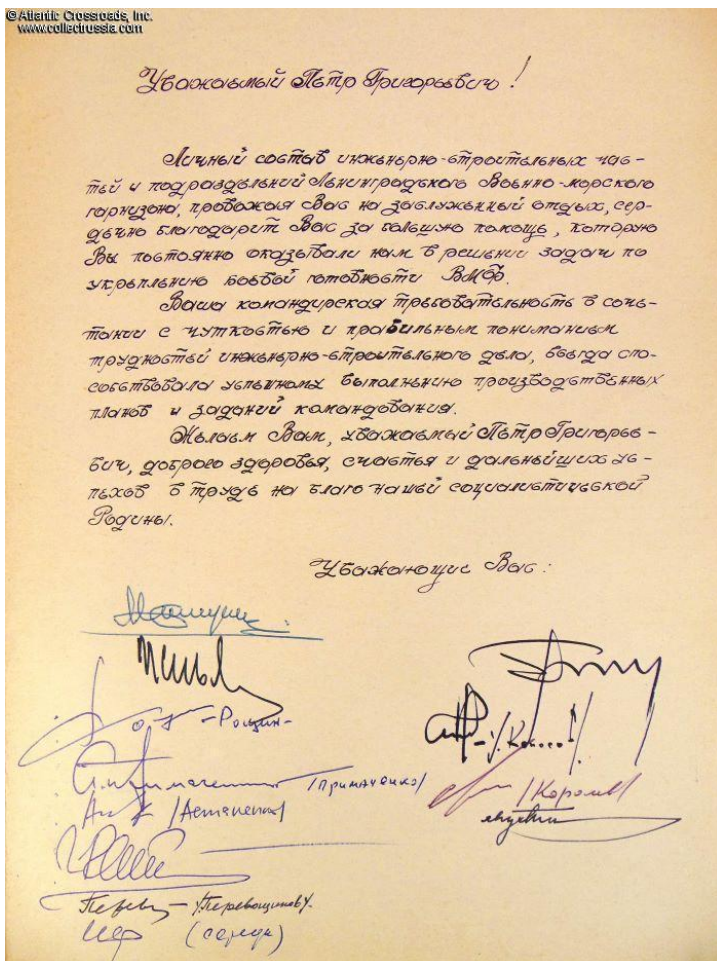 © Atlantic Crossroads, Inc.
www.collectrussia.com
Уважаемый Пётр Григорьевич!
Личный состав инженерно-строительных час-
тей и подразделений Ленинградского Военно-морского
гарнизона, провожая Вас на заслуженный отдых, сер-
дечно благодарит Вас за большую помощь, которую
Вы постоянно оказывали нам в решении задач по
укреплению боевой готовности ВМФ.
Ваша командирская требовательность в соче-
тании с чуткостью и правильным пониманием
трудностей инженерно-строительного дела, всегда спо-
собствовала успешному выполнению производственных
планов и заданий командования.
Желаем Вам, уважаемый Пётр Григорье-
вич, доброго здоровья, счастья и дальнейших ус-
пехов в труде на благо нашей социалистической
Родины.
Уважающие Вас:
-Рощин-
/Примаченко/
/Королев/
/Перевощиков/
(середи)